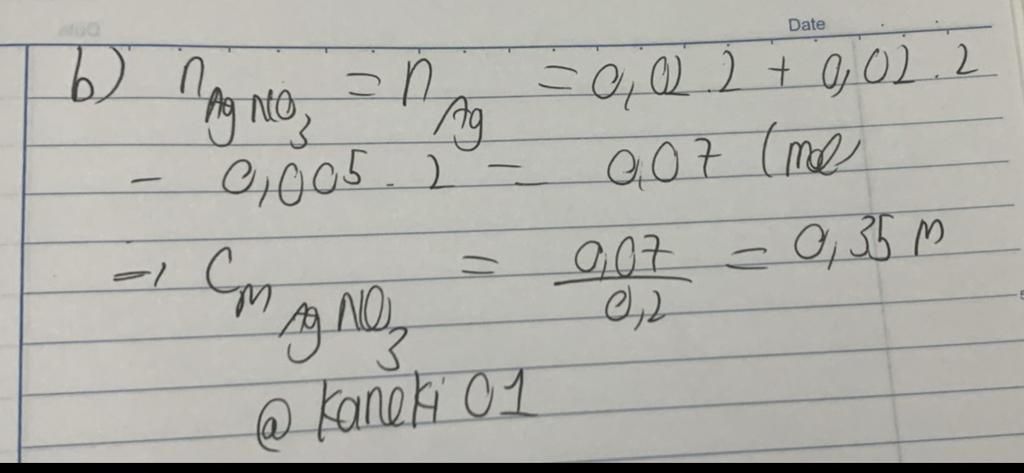 Date
b) n AgNO3 = n Ag = 0,02.2 + 0,02.2
- 0,005.2 = 0,07 (mol
=> CM AgNO3 = 0,07/0,2 = 0,35 M
@kaneki01